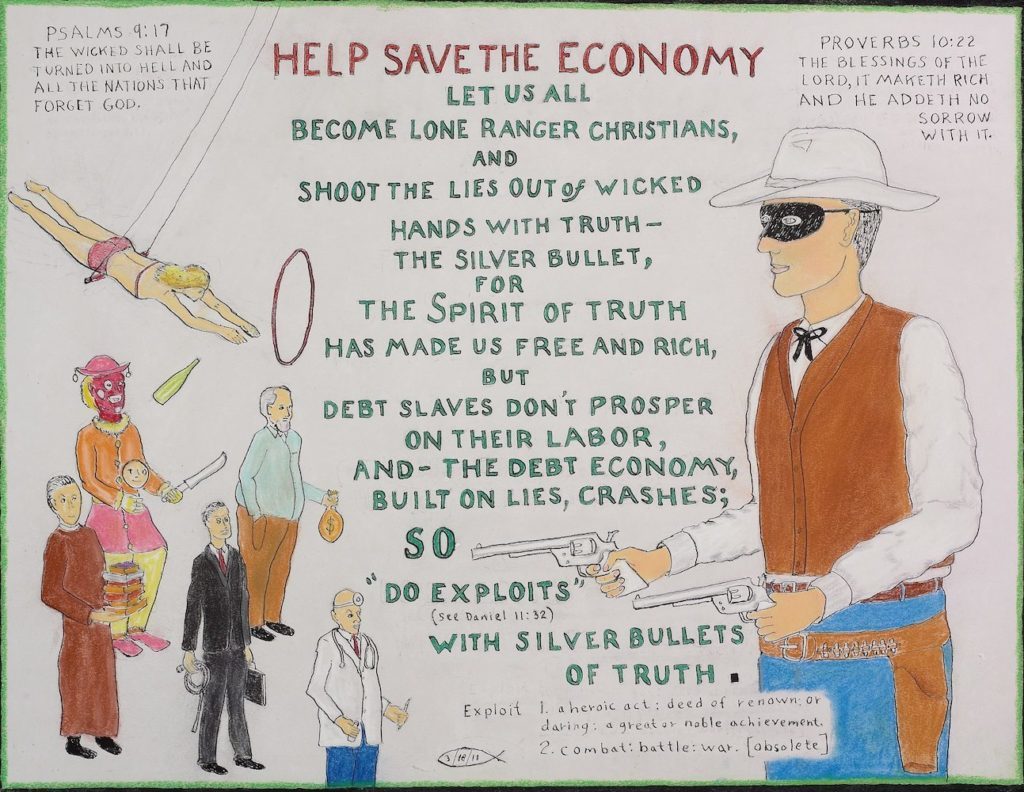 PSALMS 9:17
THE WICKED SHALL BE
TURNED INTO HELL AND
ALL THE NATIONS THAT
FORGET GOD.
HELP SAVE THE ECONOMY
LET US ALL
BECOME LONE RANGER CHRISTIANS,
AND
SHOOT THE LIES OUT of WICKED
HANDS WITH TRUTH—
THE SILVER BULLET,
FOR
THE SPIRIT OF TRUTH
HAS MADE US FREE AND RICH,
BUT
DEBT SLAVES DON'T PROSPER
ON THEIR LABOR,
AND- THE DEBT ECONOMY,
BUILT ON LIES, CRASHES;
SO
"DO EXPLOITS"
(See Daniel 11:32)
WITH SILVER BULLETS
OF TRUTH.
PROVERBS 10:22
THE BLESSINGS OF THE
LORD, IT MAKETH RICH
AND HE ADDETH NO
SORROW
WITH IT.
$
Exploit 1. a heroic act: deed of renown: or
daring: a great or noble achievement.
2. combat: battle: war. [obsolete]